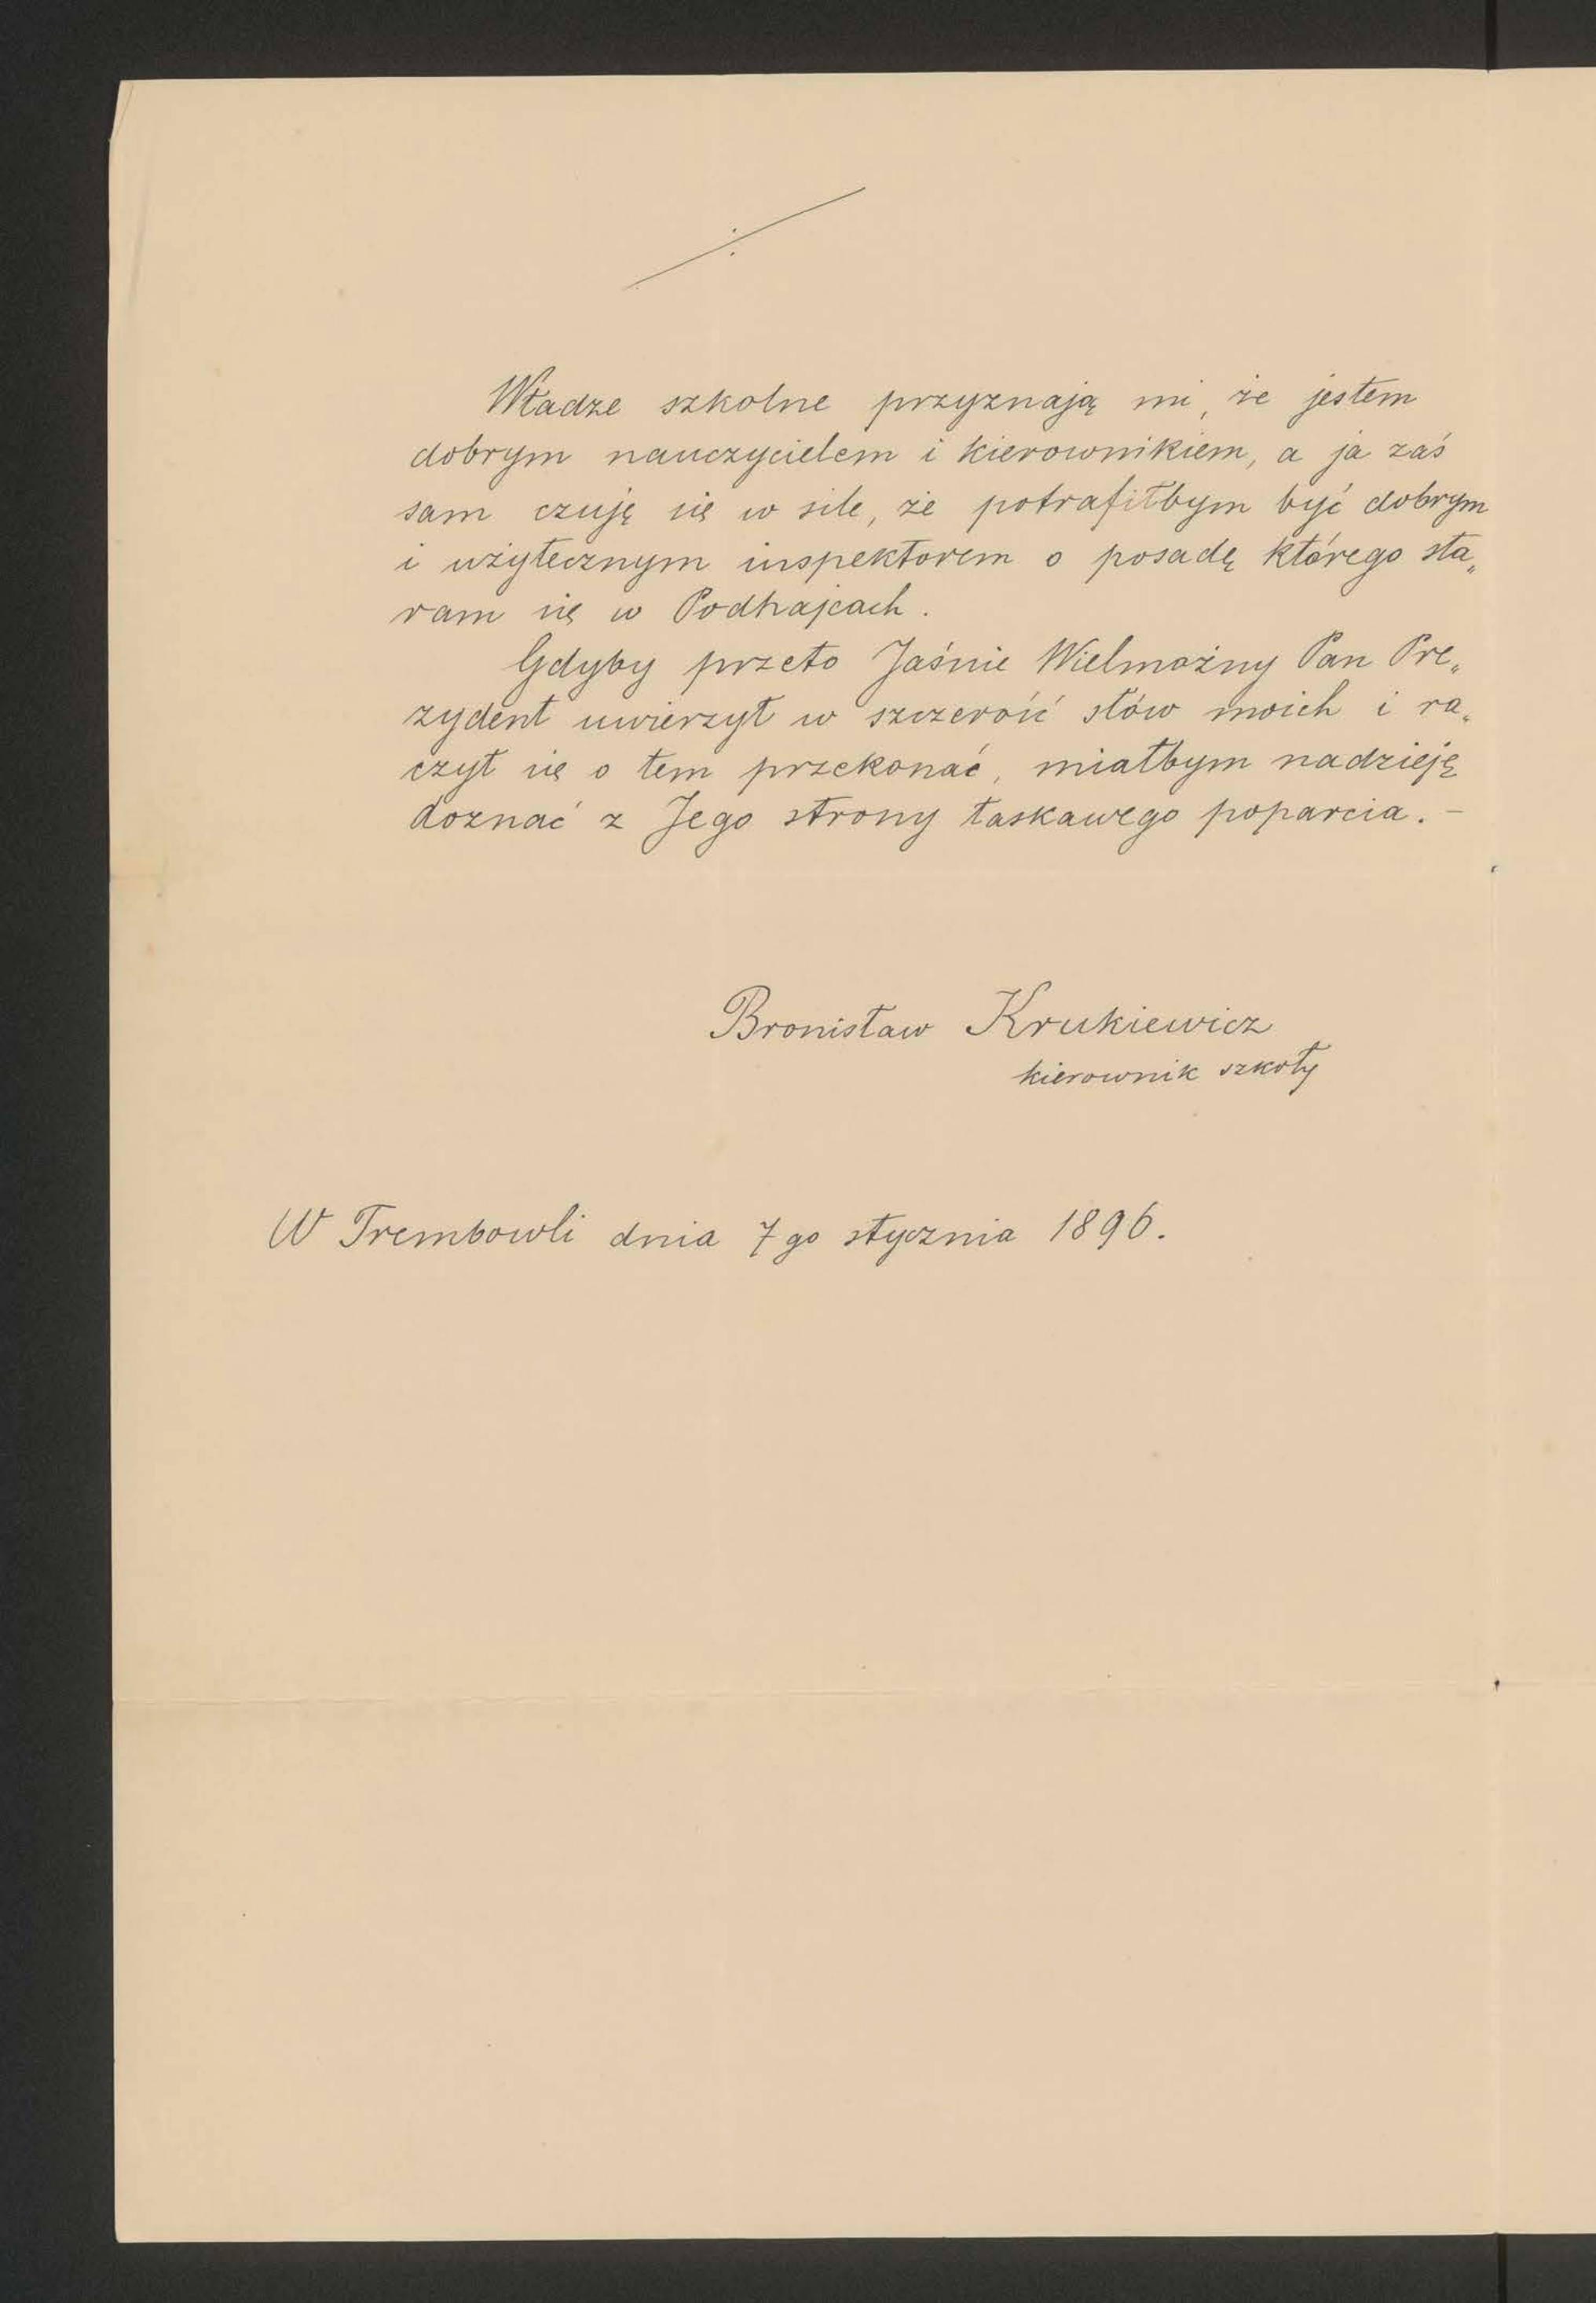 Władze szkolne przyznają mi, że jestem
dobrym nauczycielem i kierownikiem, a ja zaś
sam czuję się w sile, że potrafiłbym być dobrym
i użytecznym inspektorem o posadę którego sta„
ram się w Podhajcach.
Gdyby przeto Jaśnie Wielmożny Pan Pre„
zydent uwierzył w szczerość słów moich i ra„
czył się o tem przekonać, miałbym nadzieję
doznać z Jego strony łaskawego poparcia. –
Bronisław Krukiewicz
kierownik szkoły
W Trembowli dnia 7go stycznia 1896.